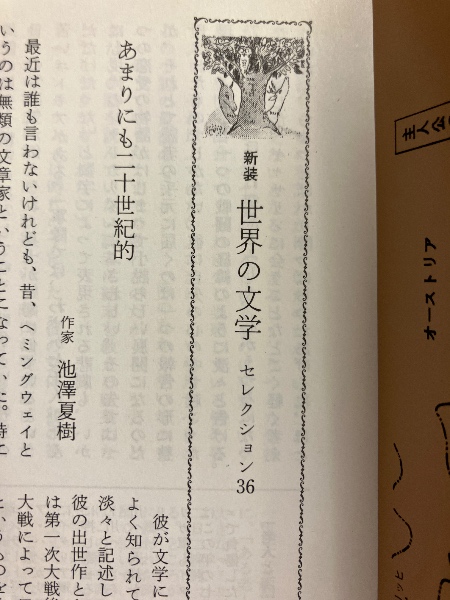 主人公
オーストリア
新装 世界の文学 セレクション36
あまりにも二十世紀的
作家 池澤夏樹
最近は誰も言わないけれども、昔、ヘミングウェイと
いうのは無類の文章家ということになっていた。特に
彼が文学に
よく知られて
淡々と記述し
彼の出世作と
は第一次大戦
大戦によって
というものを